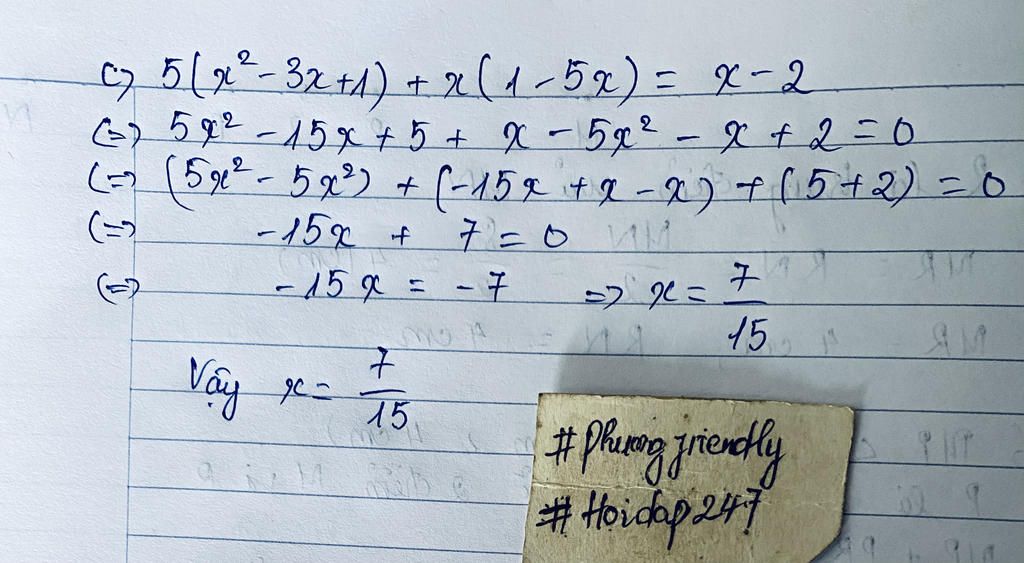 c) 5(x² - 3x + 1) + x(1 - 5x) = x - 2
(=) 5x² - 15x + 5 + x - 5x² - x + 2 = 0
(=) (5x² - 5x²) + (-15x + x - x) + (5 + 2) = 0
(=) -15x + 7 = 0
(=) -15x = -7 => x = 7/15
Vậy x = 7/15
# Phuong friendly
# Hoidap247